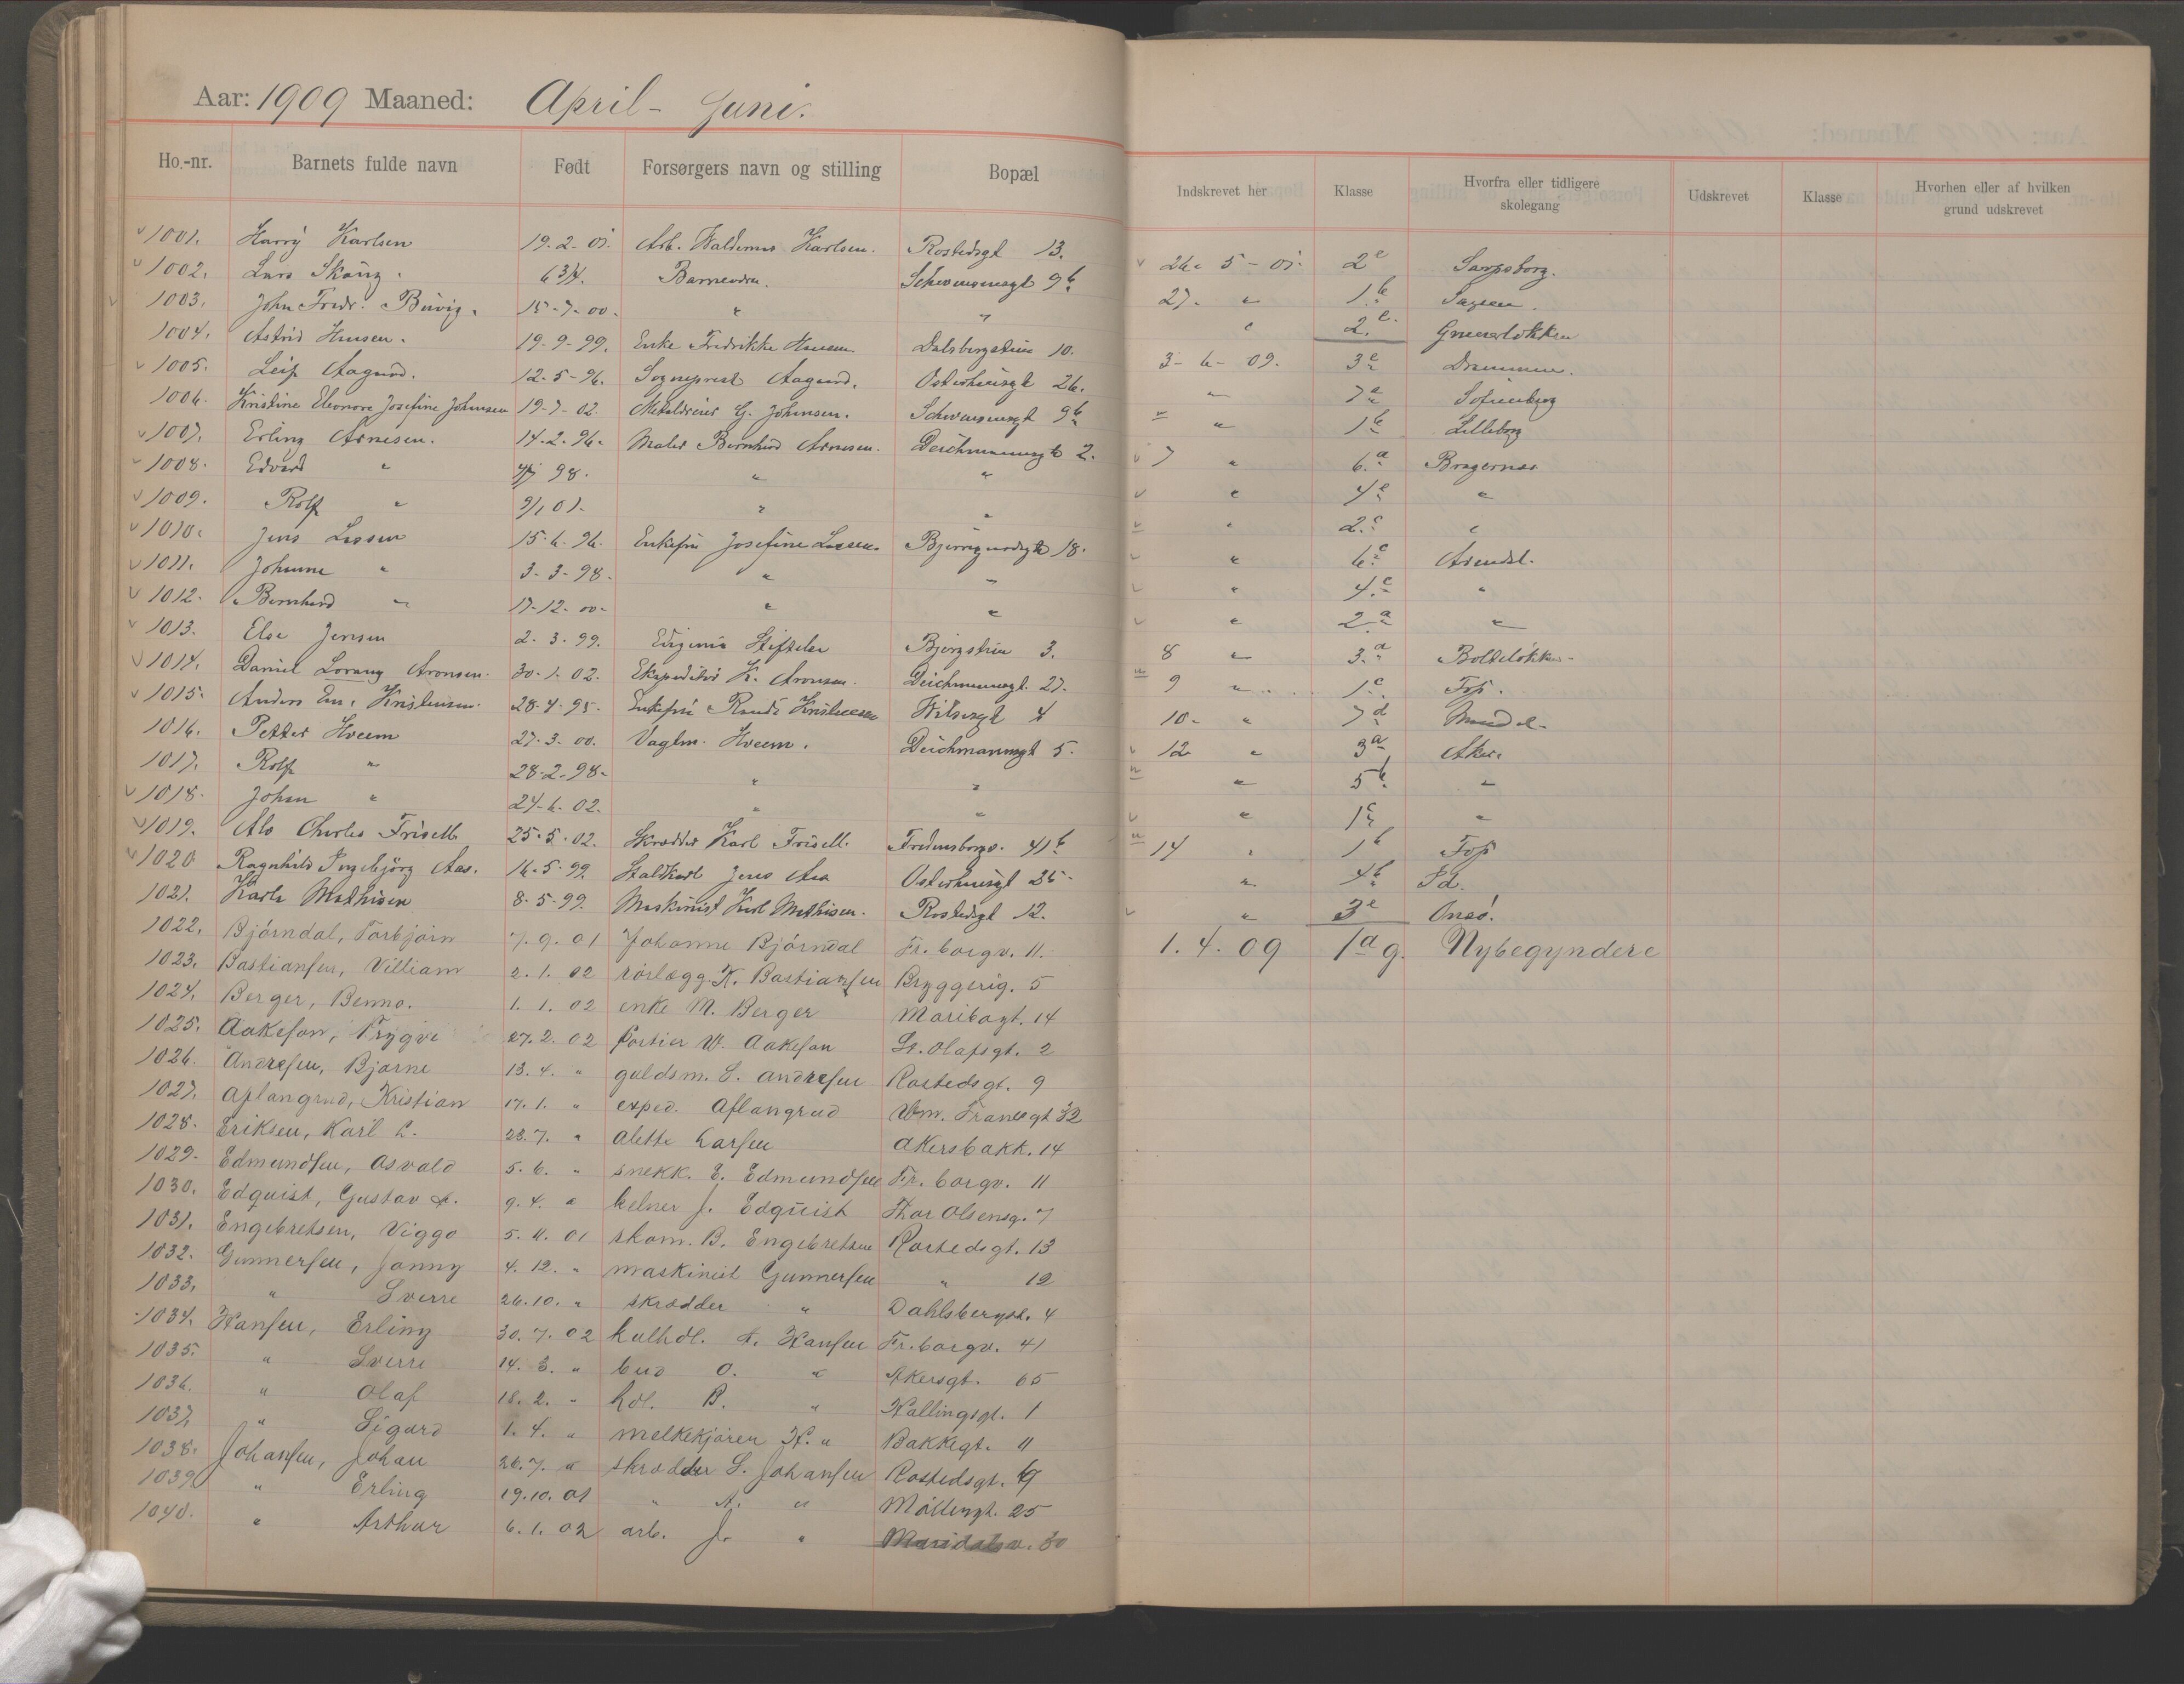 Aar: 1909 Maaned: April - Juni.
Ho.-nr. Barnets fulde navn Født Forsørgers navn og stilling Bopæl
Indskrevet her Klasse Hvorfra eller tidligere skolegang Udskrevet Klasse Hvorhen eller af hvilken grund udskrevet
1001. Harry Karlsen 19-2-01. Arb. Waldemar Karlsen. Rostedsgt 13.
1002. Lars 6 3/4. Schwensensgt 9b
1003. John Fredr. 15-7-00. " "
1004. Astrid Hansen. 19-9-99. Enke Fredrikke Hansen Dalsbergstien 10.
1005. Leif Aagaard. 12-5-96. Sogneprest Aagaard. Osterhausgt 26.
1006. Kristine Eleonore Josefine Johnsen 19-7-02. G. Johnsen. Schwensensgt 9b
1007. Erling Arnesen. 14-2-96. Maler Bernhard Arnesen. Deichmannsgt 2.
1008. Edvard " 98. " "
1009. Rolf " 01. " "
1010. Jens Lassen 15-6-96. Enkefru Josefine Lassen. 18.
1011. Johanne " 3-3-98. " "
1012. Bernhard " 17-12-00. " "
1013. Else Jensen 2-3-99. Eugenia Stiftelse Bjergstien 3.
1014. Daniel Lorang Aronsen. 30-1-02. Ekspeditør K. Aronsen. Deichmannsgt. 27.
1015. Anders Em. Kristensen. 28-4-95. Enkefru Kristensen 4
1016. Petter Hveem 27-3-00. Vagtm. Hveem. Deichmannsgt 5.
1017. Rolf " 28-2-98. " "
1018. Johan " 24-6-02. " "
1019. Charles Frisell 25-5-02. Skrædder Karl Frisell. Fredensborgv. 41b
1020 Ragnhild Ingebjörg Aas. 16-5-99. Staldkarl Jens Aas Osterhausgt 25.
1021. Karla Mathisen 8-5-99. Maskinist Karl Mathisen. Rostedsgt 12.
1022. Björndal, Torbjörn 7.9.01 Johanne Björndal Fr.borgv. 11.
1023. Bastiansen, Villiam 2.1.02 rörlægg. K. Bastiansen Bryggerig. 5
1024. Berger, Benno. 1.1.02 enke M. Berger Maribogt. 14
1025. Aakeson, Trygve 27.2.02 Portier W. Aakeson St. Olafsgt. 2
1026. Andresen, Bjarne 13.4. " guldsm. S. Andresen Rostedsgt. 9
1027. Aflangrud, Kristian 17.1. " exped. Aflangrud Wm. Tranesgt 32
1028. Eriksen, Karl L. 23.7. " Alette Larsen Akersbakk. 14
1029. Edmundsen, Osvald 5.6. " snekk. E. Edmundsen Fr.borgv. 11
1030. Edquist, Gustav A. 9.4. " kelner J. Edquist Thor Olsensg. 7
1031. Engebretsen, Viggo 5.11.01 skom. B. Engebretsen Rostedsgt. 13
1032. Gunnersen, Jonny 4.12. " maskinist Gunnersen " 12
1033. " Sverre 26.10. " skrædder " Dahlsbergst. 4
1034. Hansen, Erling 30.7.02 kulhdl. A. Hansen Fr.borgv. 41
1035. " Sverre 14.3. " bud O. " Akersgt. 65
1036. " Olaf 18.2. " hdl. B. " Hallingsgt. 1
1037. " Sigurd 1.4. " melkekjører H. " Bakkegt. 11
1038. Johansen, Johan 26.7. " skrædder S. Johansen Rostedsgt. 9
1039. " Erling 19.10.01 " A. " Möllergt. 25
1040. " Arthur 6.1.02 arb. J. " Maridalsv. 80
26-5-01. 2e Sarpsborg.
27. " 1b Sagene.
" 2c. Grünerløkken
3-6-09. 3e Drammen.
" 7a Sofienberg
" 1b Lilleborg
7 " 6.a Bragernes
" 4e "
" 2.c "
" 6c Arendal.
" 4.c "
" 2.a "
8 " 3.a Bolteløkken
9 " 1c
10. " 7d
12 " 3a Aker.
" 5b. "
" 1c "
14 " 1b
" 4b
" 3e Onsö.
1.4.09 1a g. Nybegyndere